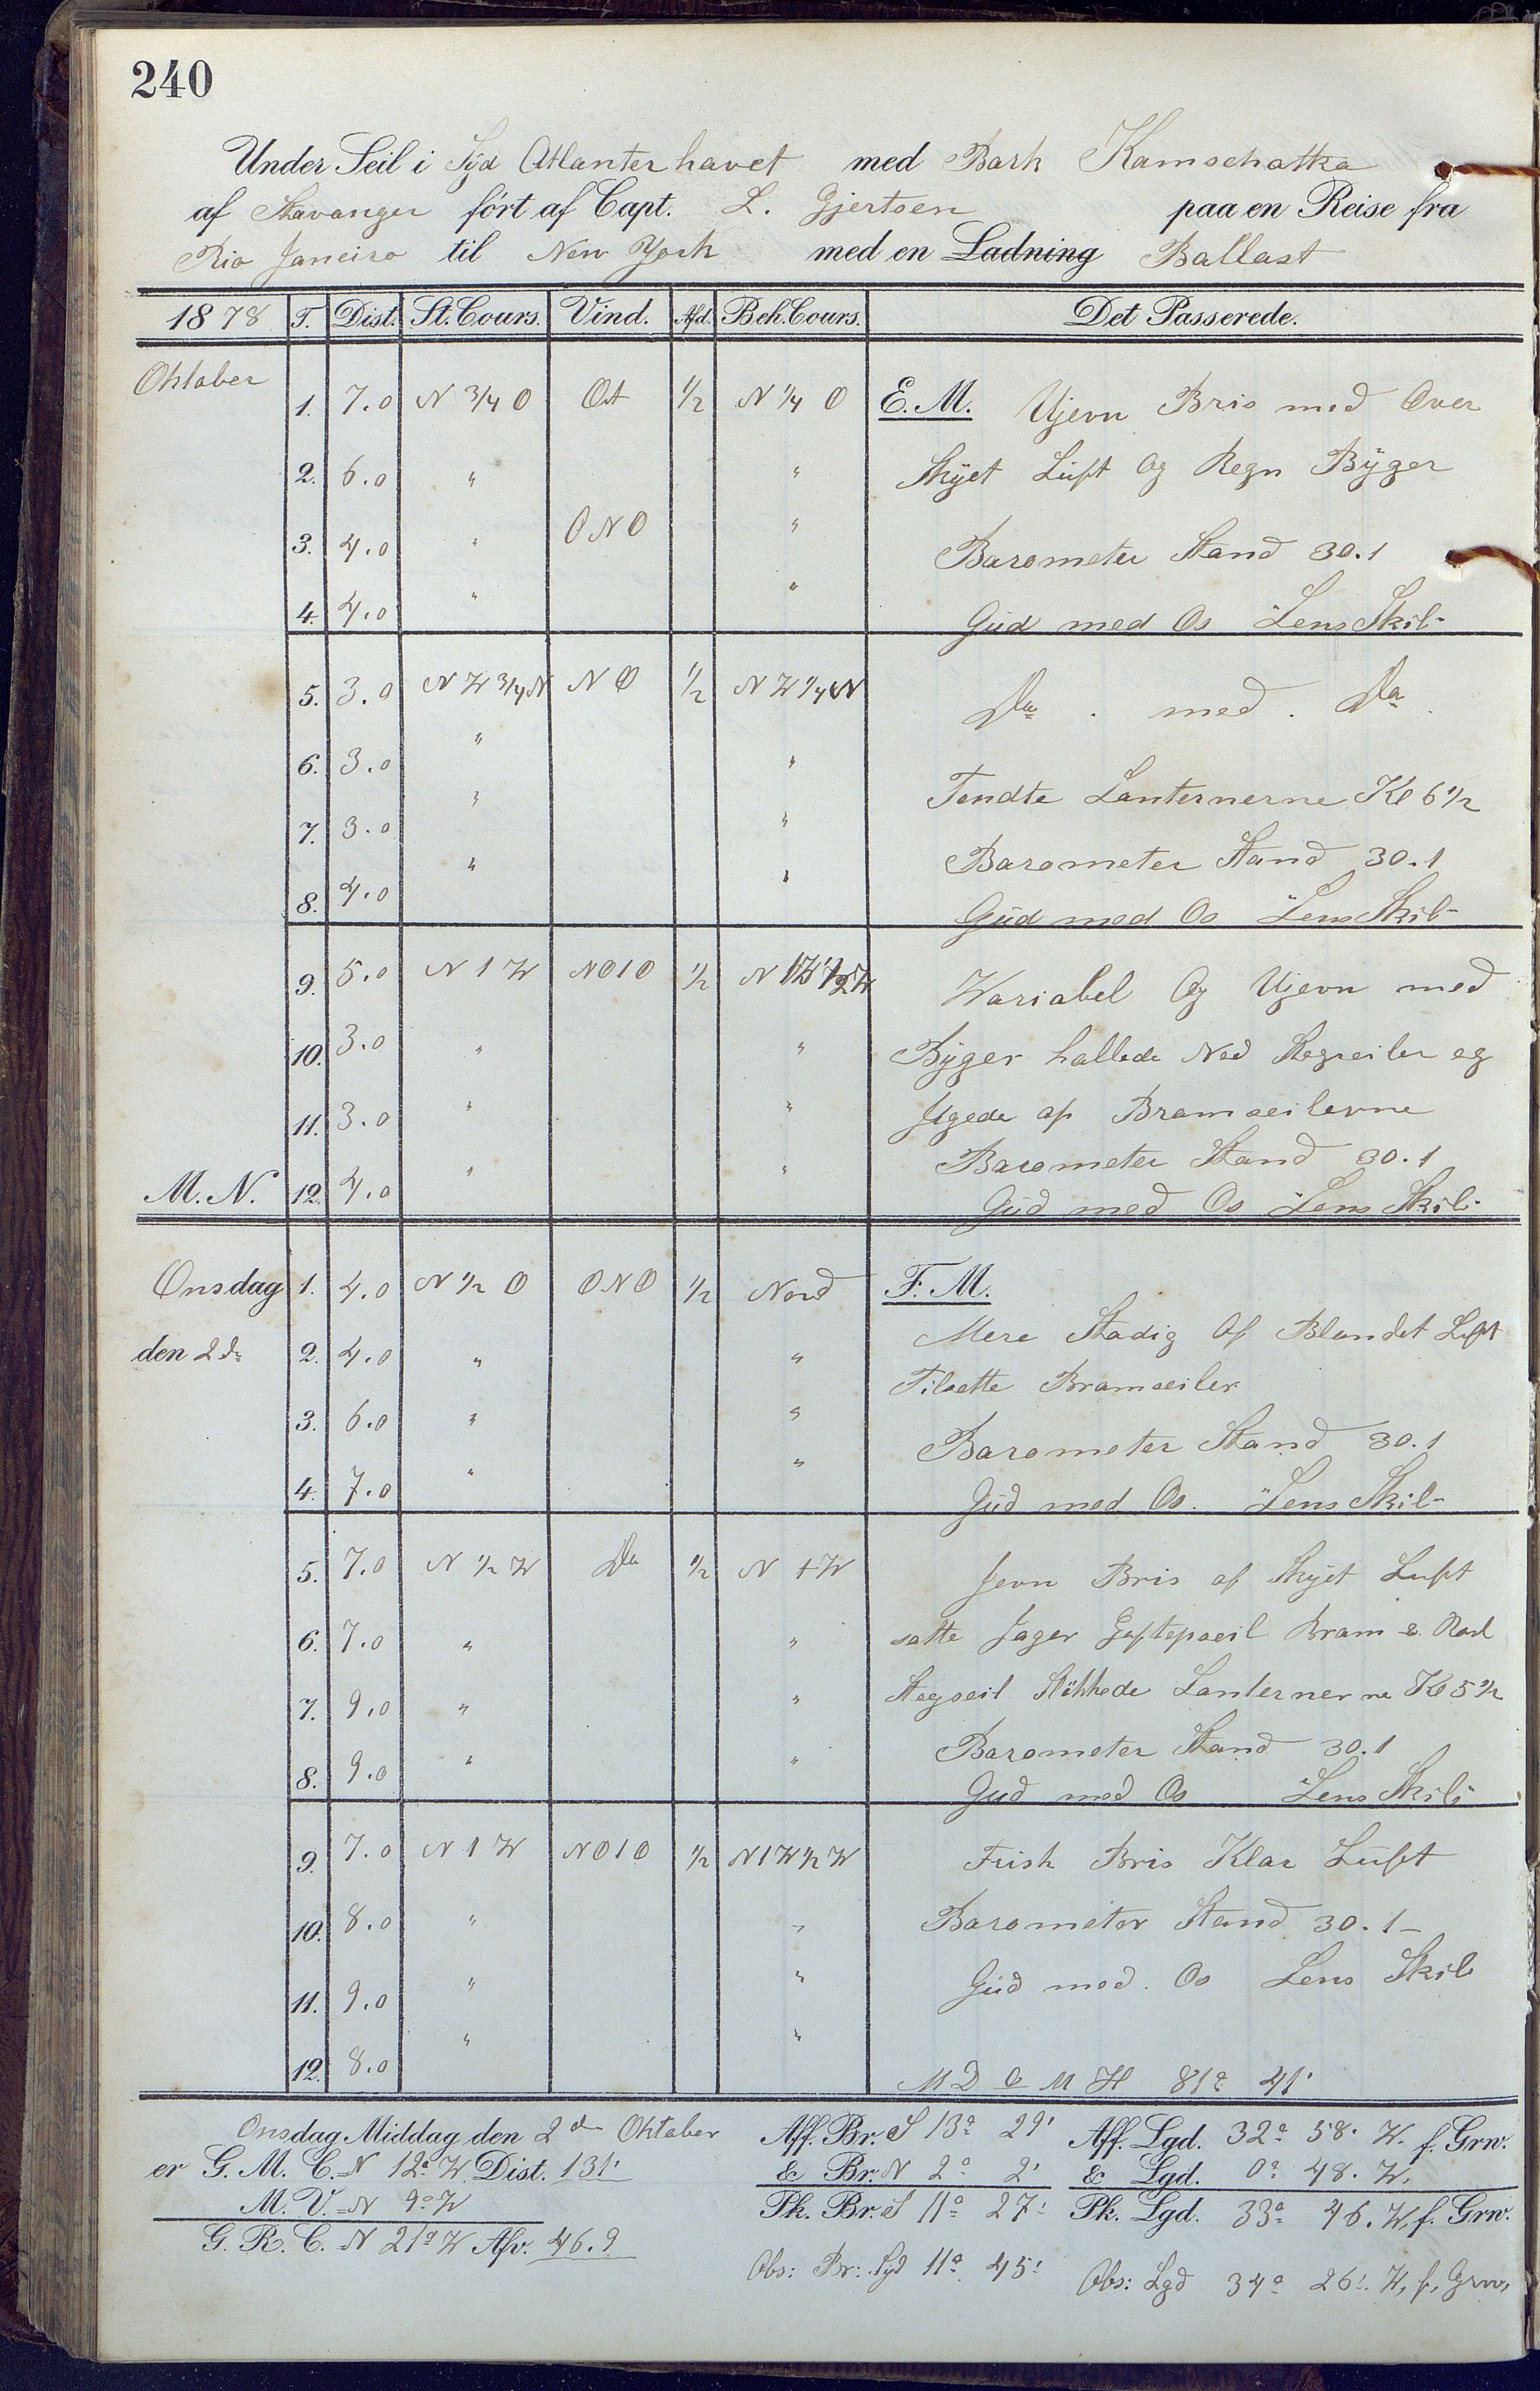 240
Under Seil i Syd Atlanterhavet med Bark Kamschatka
af Stavanger ført af Capt. L. Gjertsen paa en Reise fra
Rio Janeiro til New York med en Ladning Ballast
1878 T. Dist. St. Cours. Vind. Afd. Beh. Cours. Det Passerede.
Oktober 1. 7.0 N 3/4 O Ost 1/2 N 1/4 O E. M. Ujevn Bris med Over
2. 6.0 " " Skyet Luft Og Regn Byger
3. 4.0 " ONO " Barometer Stand 30.1
4. 4.0 " " Gud med Os Lens Skib
5. 3.0 N W 3/4 N N O 1/2 N W 1/4 N Do . med . Do
6. 3.0 " "
7. 3.0 " " Tendte Lanternerne Kl 6 1/2
Barometer Stand 30.1
8. 4.0 " " Gud med Os Lens Skib
9. 5.0 N 1 W NO1O 1/2 N 1W 1/2 W Wariabel Og Ujevn med
10. 3.0 " " Byger hallede Ned Stegseiler og
11. 3.0 " " af Bramseilerne
Barometer Stand 30.1
M. N. 12. 4.0 " " Gud med Os Lens Skib
Onsdag 1. 4.0 N 1/2 O ONO 1/2 Nord F. M.
den 2de 2. 4.0 " " Mere Stadig Af Blandet Luft
Tilsette Bramseiler
3. 6.0 " " Barometer Stand 30.1
4. 7.0 " " Gud med Os. Lens Skib
5. 7.0 N 1/2 W Do 1/2 N 1 W Jevn Bris af Skyet Luft
6. 7.0 " " satte Jager Bram &
7. 9.0 " " Stegseil Slukkede Lanternerne Kl 5 1/2
Barometer Stand 30.1
8. 9.0 " " Gud med Os Lens Skib
9. 7.0 N 1 W NO1O 1/2 N1W 1/2 W Frisk Bris Klar Luft
10. 8.0 " " Barometer Stand 30.1
11. 9.0 " " Gud med. Os Lens Skib
12. 8.0 " "
M D M H 81° 41'
Onsdag Middag den 2de Oktober Aff. Br. S 13° 29' Aff. Lgd. 32° 58' W. f. Grw.
er G. M. C. N 12° W Dist. 131' & Br. N 2° 2' & Lgd. 0° 48' W.
M. V. N 9° W Pk. Br. S 11° 27' Pk. Lgd. 33° 46' W. f. Grw.
G. R. C. N 21° W Afv. 46.9
Obs: Br: Syd 11° 45' Obs: Lgd 34° 26' W. f. Grw.